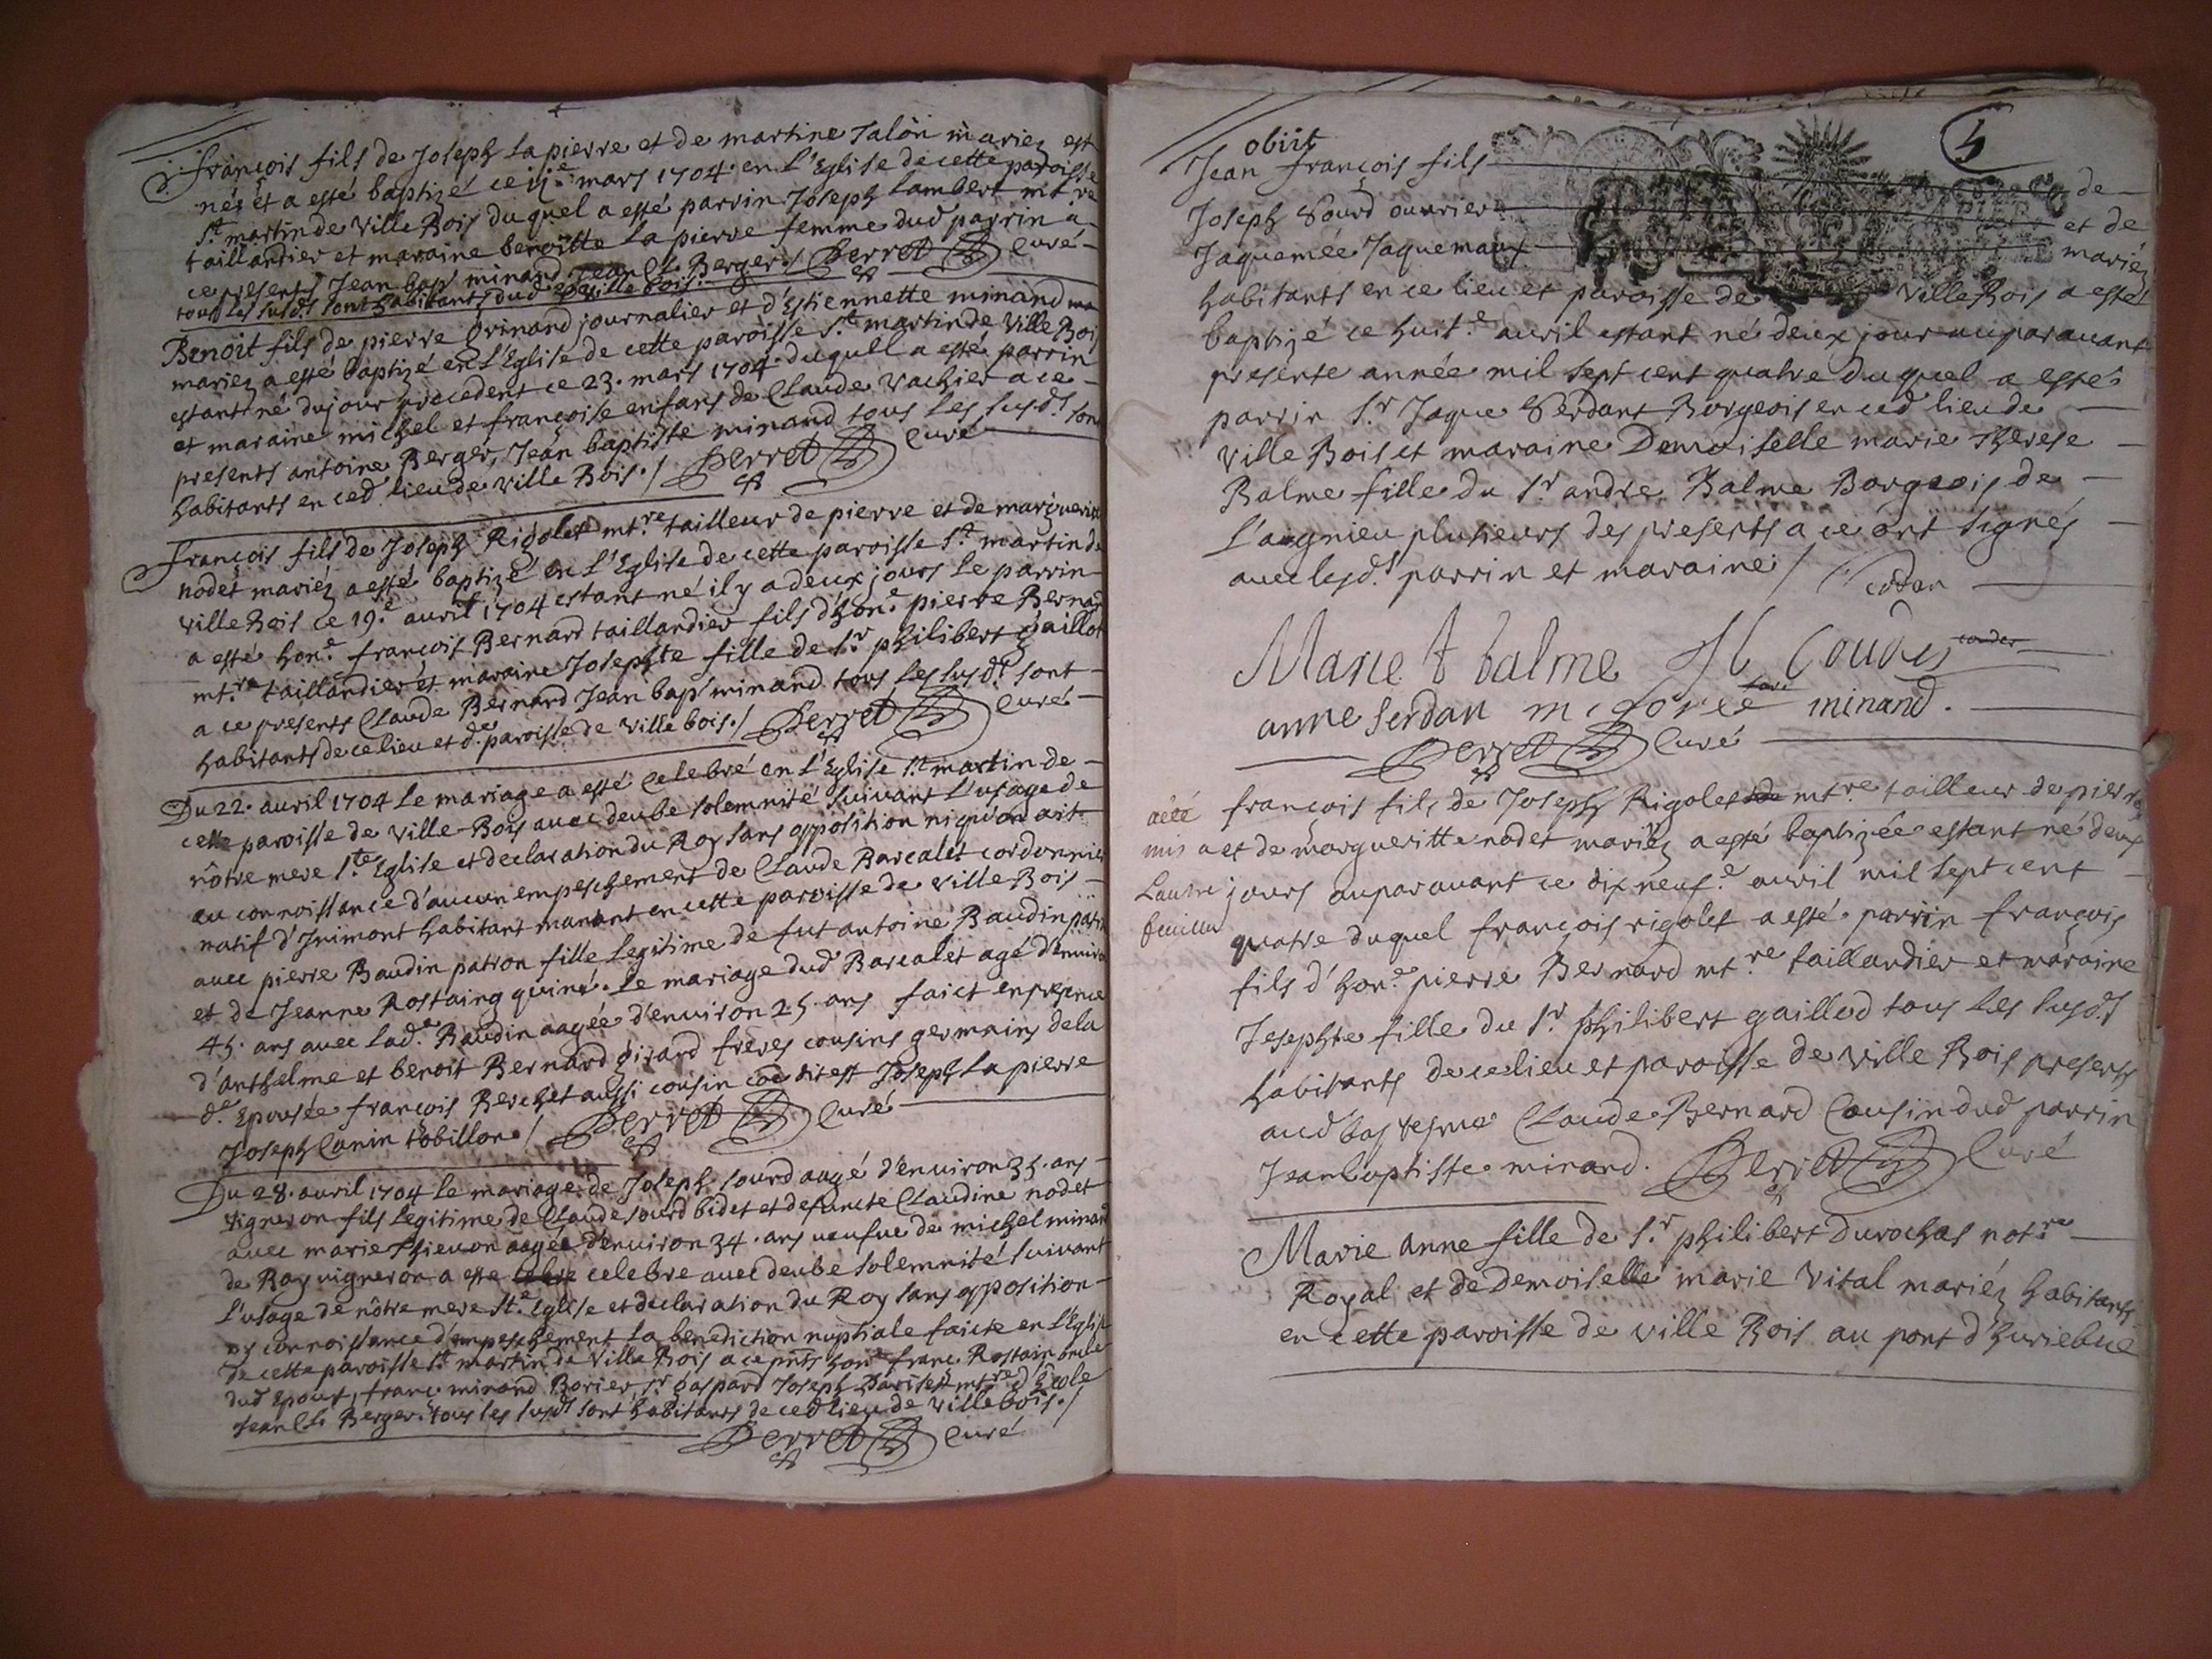 françois fils de Joseph Lapierre et de martine Talon mariez est
néz et a esté baptizé ce mars 1704 en L'Eglise de cette paroisse
St. martin de Ville Bois duquel a esté parrin Joseph Lambert mtre
taillandier et maraine benoitte La pierre femme dud parrin a
ce presents Jean bap minand Jean Cl. Berger / Perret Curé
tous les susds. sont habitants dud Ville bois.
Benoit fils de pierre Grinand journalier et d'Estiennette minand
mariez a esté baptizé en L'Eglise de cette paroisse St. martin de Ville Bois
estant né du jour precedent ce 23. mars 1704. duquell a esté parrin
et maraine michel et françoise enfans de Claude Vachier a ce
presents antoine Berger, Jean baptiste minand tous Les susds. son
habitants en ced. lieu de ville Bois. / Perret Curé
françois fils de Joseph Rigolet mtre tailleur de pierre et de margueritte
nodet mariéz a esté baptizé en L'Eglise de cette paroisse St. martin de
ville Bois ce 19e. avril 1704 estant né il y a deux jours Le parrin
a esté hone. françois Bernard taillandier fils d'hone. pierre Bernard
mtre taillandier et maraine Josephte fille de Sr. philibert gaillot
a ce presents Claude Bernard Jean bap minand tous Les susds. sont
habitants de ce lieu et de. paroisse de ville bois. / Perret Curé
Du 22. avril 1704 Le mariage a esté Celebré en L'Eglise St. martin de
cette paroisse de ville-Bois avec deube solemnité suivant L'usage de
nôtre mere Ste. Eglise et declaration du Roy sans opposition ni qu'on ait
eu connoissance d'aucun empeschement de Claude Barcalet cordonnier
natif d'Inimont habitant manant en cette paroisse de ville Bois
avec pierre Baudin patron fille Legitime de fut antoine Baudin patron
et de Jeanne Rostaing. Le mariage dud Barcalet agé d'environ
45. ans avec Lade. Baudin aagée d'environ 25. ans faict en presence
d'anthelme et benoit Bernard girard freres cousins germains de la
de. Epousée françois Berchet aussi cousin Joseph La pierre
Joseph Canin Robillon / Perret Curé
Du 28. avril 1704 Le mariage de Joseph Sourd aagé d'environ 35. ans
vigneron fils Legitime de Claude Sourd bidet et defuncte Claudine nodet
avec marie Thievon aagée d'environ 34. ans veufue de michel minand
de Roy vigneron a esté celebré avec deube solemnité suivant
L'usage de nôtre mere Ste. Eglise et declaration du Roy sans opposition
ny connoissance d'empeschement La benediction nuptiale faicte en L'Eglise
de cette paroisse St. martin de Ville Bois a ce pnts hone. franc. Rostain oncle
dud Epoux, franc. minand Borier, Sr. gaspard Joseph Pariset mtre d'Ecole
Jean Cl. Berger. tous Les susds. sont habitants de ced lieu de Ville bois. /
Perret Curé
5
obiit
Jean françois fils de
Joseph Sourd ouvrier et de
Jaquemée Jaquemaux mariez
habitants en ce lieu et paroisse de Ville Bois a esté
baptizé ce huite. avril estant né deux jour auparavant
presente année mil sept cent quatre Duquel a esté
parrin Sr. Jaque Serdant Borgeois en ced lieu de
Ville Bois et maraine Demoiselle marie Therese
Balme fille du Sr. andre Balme Borgeois de
L'agnieu plusieurs des presents a ce ont signés
avec lesds. parrin et maraine / Serdan
Marie t balme Coudis
anne Serdan minand.
Perret Curé
aété
mis a
Lautre
feuillet
françois fils de Joseph Rigolet mtre tailleur de pierre
et de margueritte nodet mariéz a esté baptizée estant né deux
jours auparavant ce dix neufe. avril mil sept cent
quatre duquel françois rigolet a esté parrin françois
fils d'hone. pierre Bernard mtre taillandier et maraine
Josephte fille du Sr. philibert gaillod tous Les susds.
habitants de ce lieu et paroisse de ville Bois presents
aud bapteme Claude Bernard Cousin dud parrin
Jean baptiste minand. Perret Curé
Marie Anne fille de Sr. philibert Durochat notre
Royal et de Demoiselle marie Vital mariéz habitants
en cette paroisse de ville Bois au pont d'huriebue